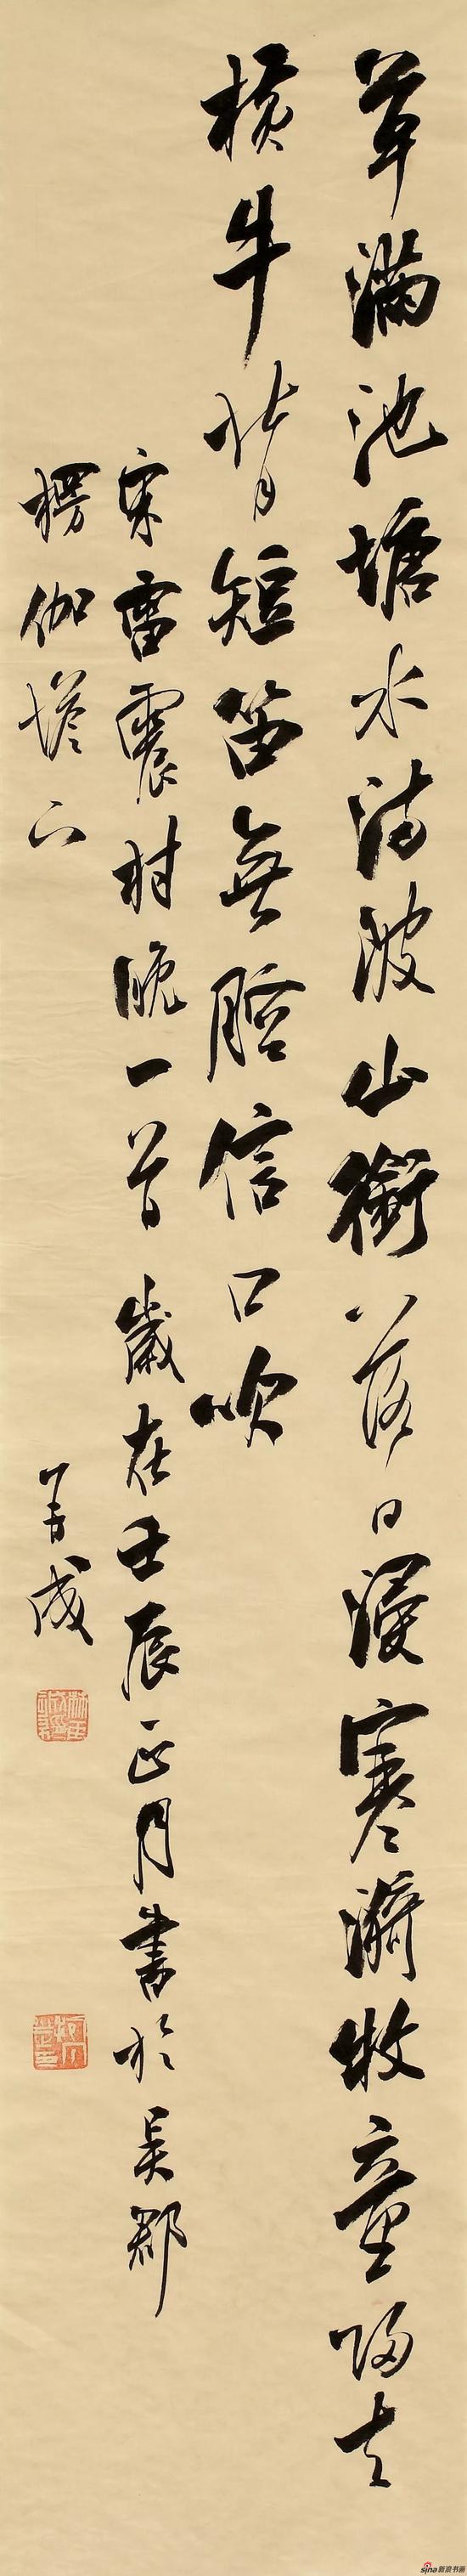 草满池塘水满陂山衔落日浸寒漪牧童归去
横牛背短笛無腔信口吹
宋雷震村晚一首歲在壬辰正月書於吴郡
楞伽塔下
善成
sina新浪书画